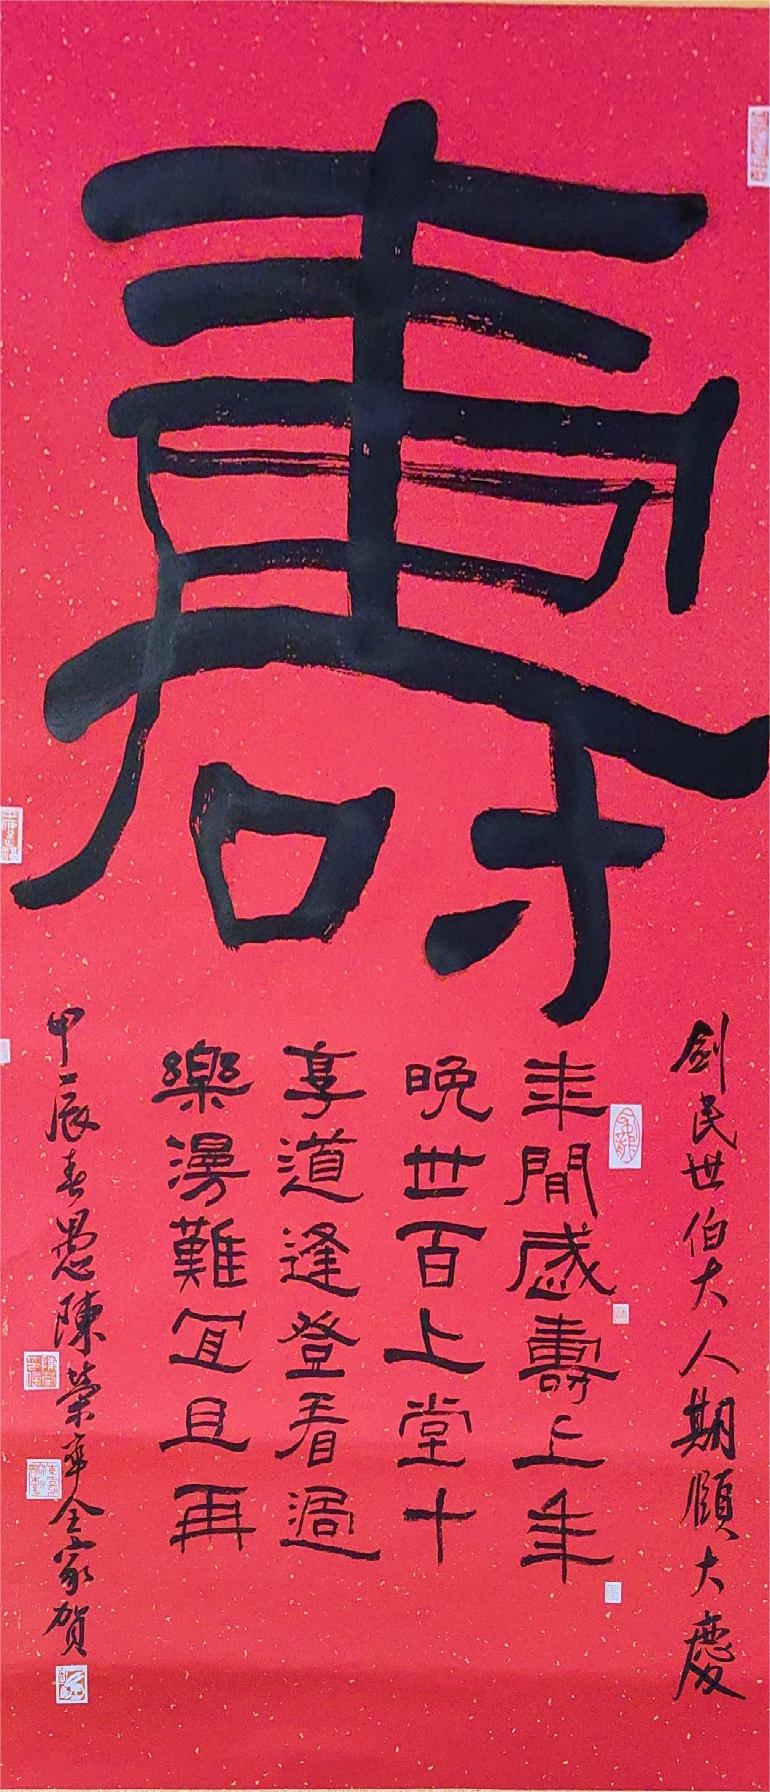 壽
劍民世伯大人期頤大慶
樂享晚年
漫道世閒
難逢百歲
宜登上壽
且看堂上
再過十年
甲辰春愚陳榮率全家賀